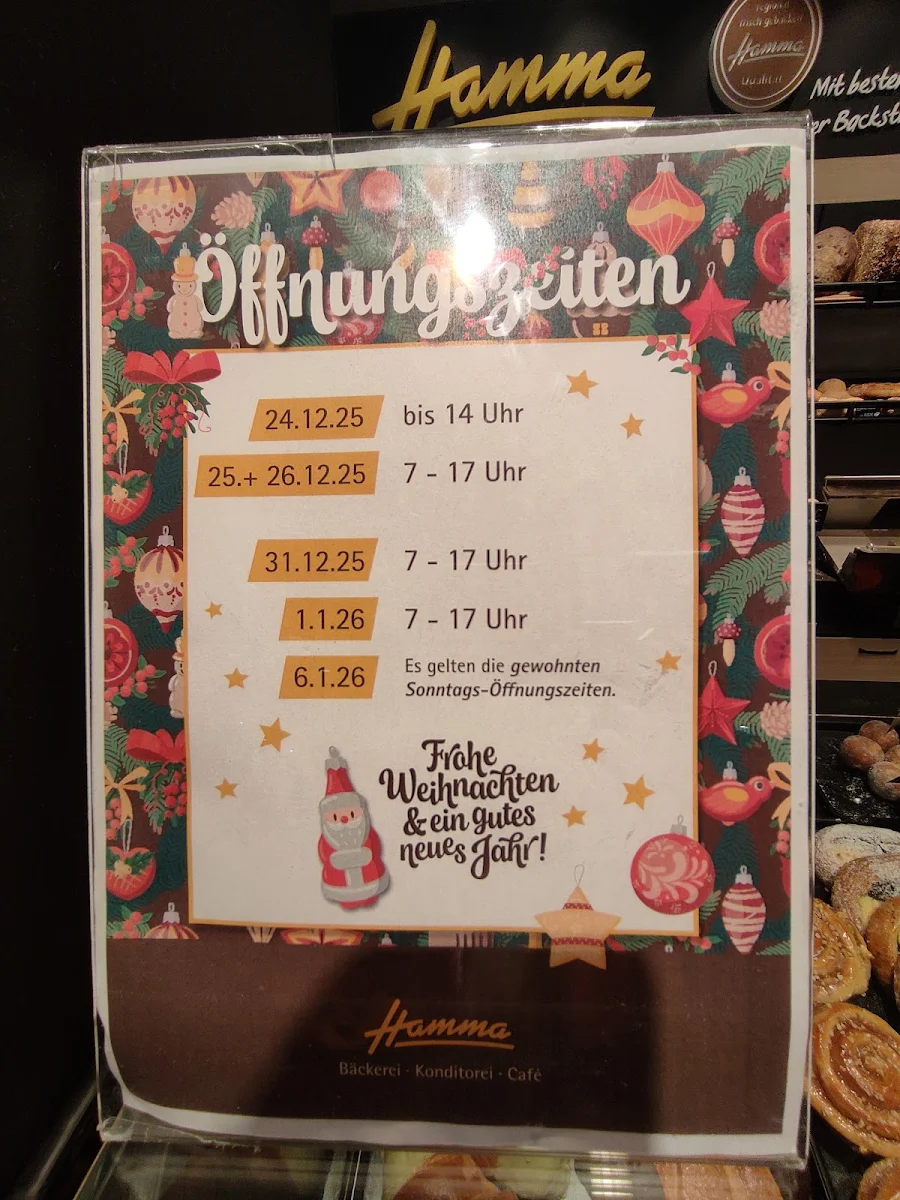 Hamma
regional
frisch gebacken
Hamma
Qualität
Mit besten
er Backst
Öffnungszeiten
24.12.25 bis 14 Uhr
25.+ 26.12.25 7 - 17 Uhr
31.12.25 7 - 17 Uhr
1.1.26 7 - 17 Uhr
6.1.26 Es gelten die gewohnten
Sonntags-Öffnungszeiten.
Frohe
Weihnachten
& ein gutes
neues Jahr!
Hamma
Bäckerei · Konditorei · Café